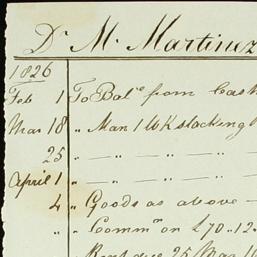 Dr M. Martinez
1826
Feb 1 To Bal.e from Cas
Mar 18 " Man 1 Wk stocking
25 — " — " —
April 1 " — " — " —
4 " Goods as above —
" " Comm.n on £70.12.
Rent due 25 Mar